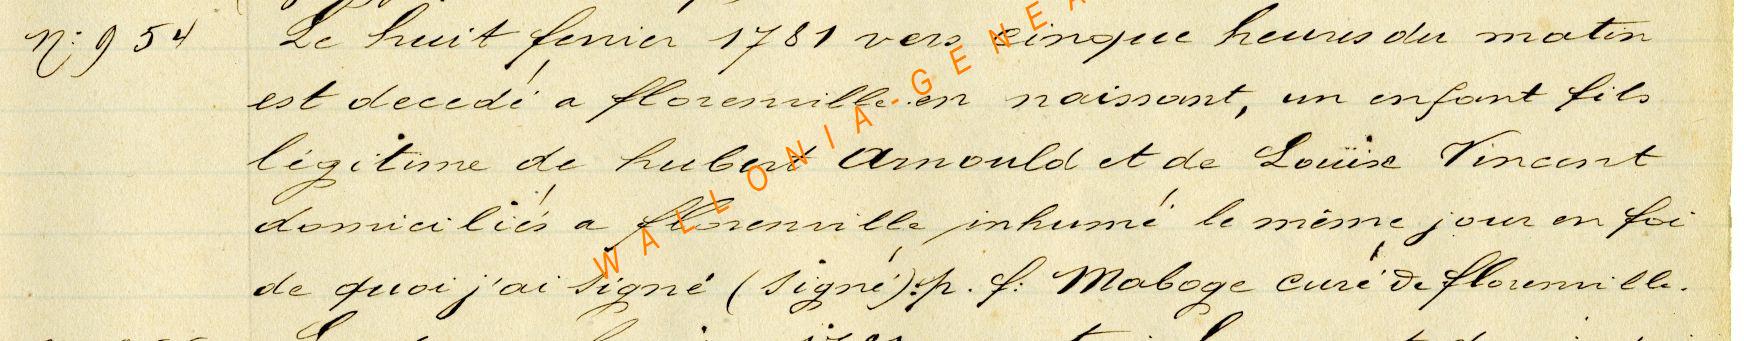 N: 954 Le huit fevrier 1781 vers cinque heures du matin
est decedé a florenville en naissant, un enfant fils
légitime de hubert Arnould et de Louïse Vincent
domiciliés a florenville inhumé le même jour en foi
de quoi j'ai signé (signé) p. f: Maboge curé de florenville.
WALLONIA-GENEA